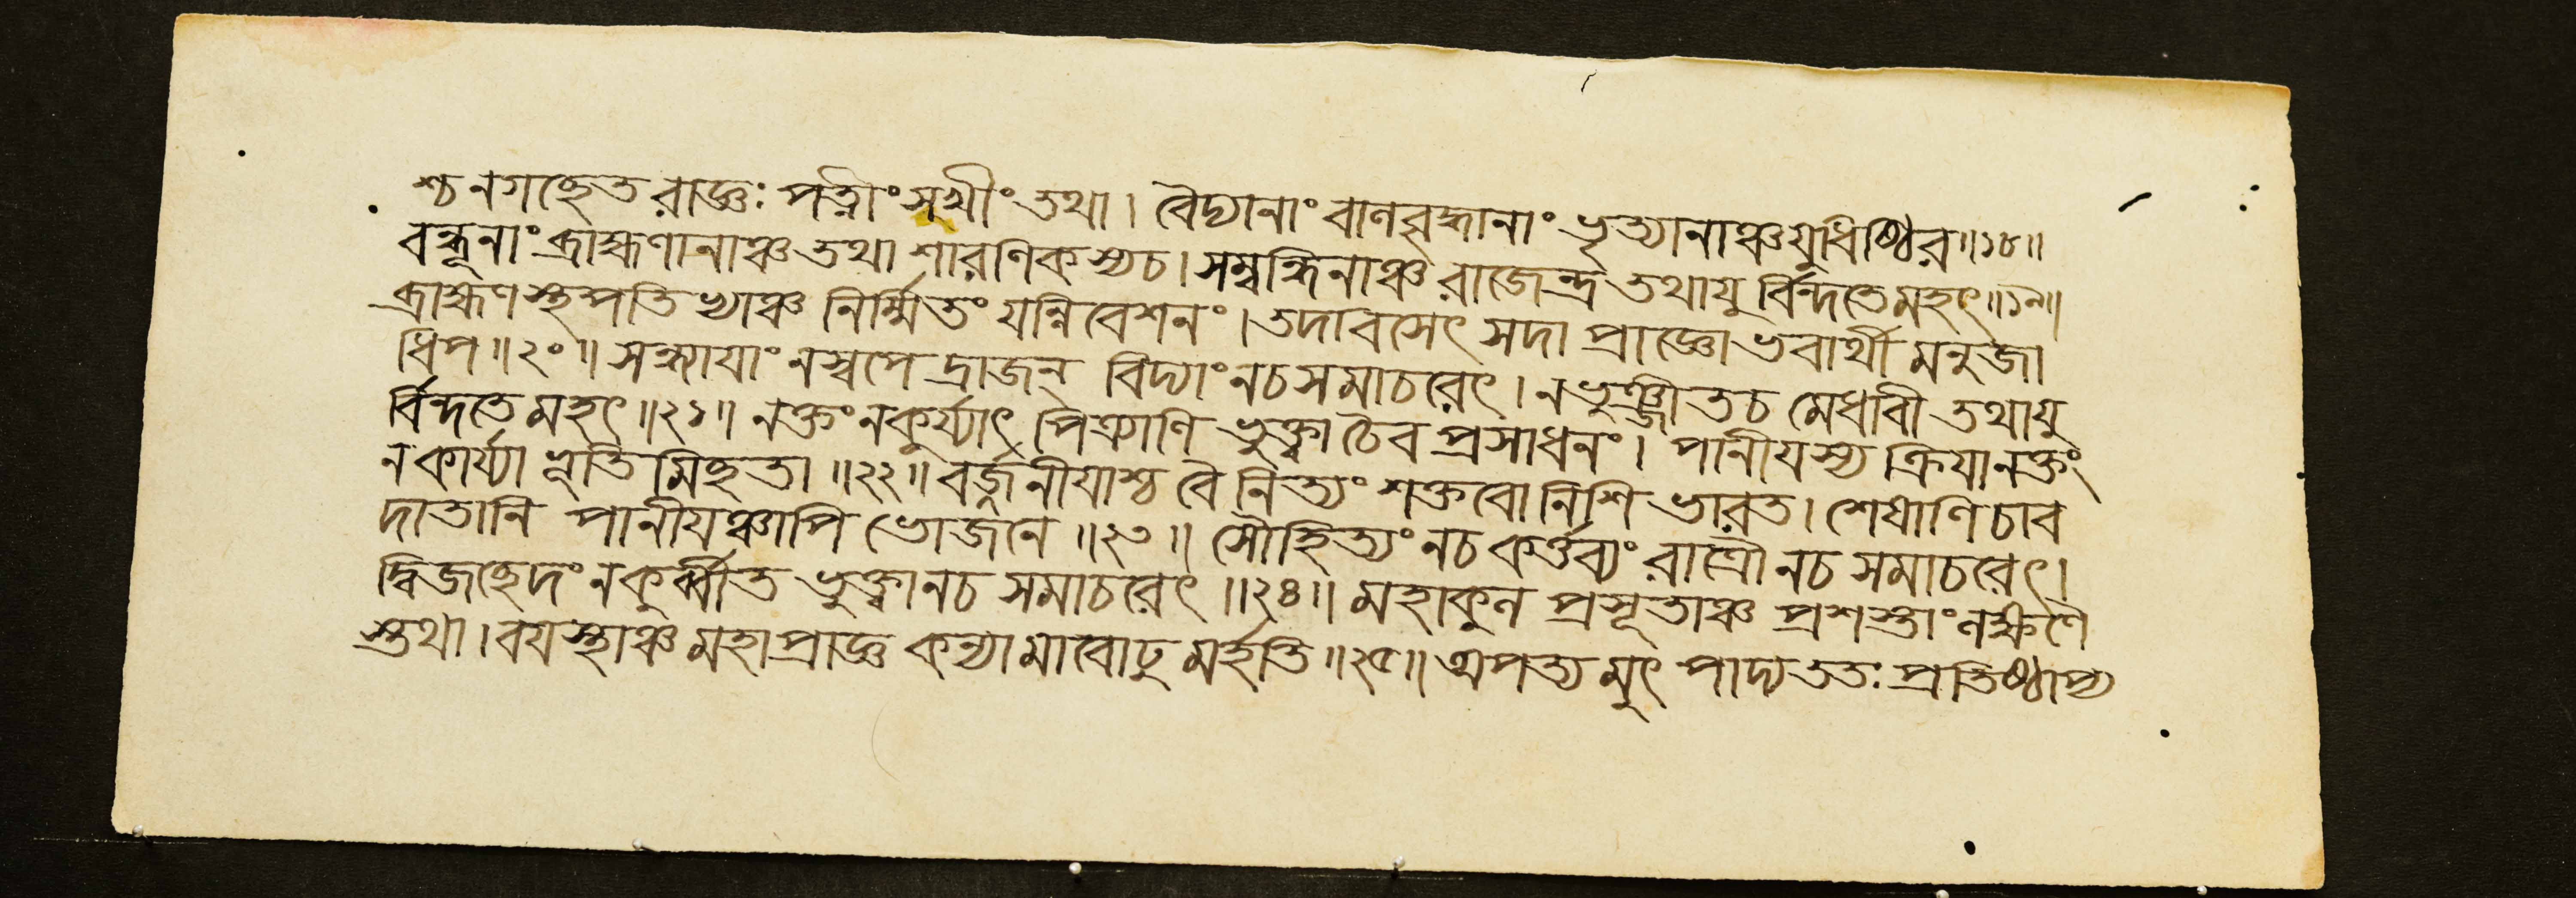 শ্চ নগচ্ছেত রাজ্ঞঃ পত্নীং সখীং তথা। বৈদ্যানাং বাণবৃদ্ধানাং ভৃত্যানাঞ্চযুধিষ্ঠির॥১৮॥
বন্ধূনাং ব্রাহ্মণানাঞ্চ তথা শারণিকস্যচ। সম্বন্ধিনাঞ্চ রাজেন্দ্র তথাযু র্বিন্দতেমহৎ॥১৯॥
ব্রাহ্মণস্থপতিখ্যাঞ্চ নির্ম্মিতং যন্নিবেশনং। তদাবসেৎ সদা প্রাজ্ঞো ভবার্থী মনুজা
ধিপ॥২০॥ সন্ধ্যাযাং নস্বপে দ্রাজন্ বিদ্যাং নচসমাচরেৎ। নভুঞ্জীতচ মেধাবী তথাযু
র্বিন্দতে মহৎ॥২১॥ নক্তং নকুর্য্যাৎ পিত্র্যাণি ভুক্ত্বাচৈব প্রসাধনং। পানীযস্য ক্রিযানক্তং
নকার্য্যা ভূতি মিচ্ছতা॥২২॥ বর্জ্জনীযাশ্চ বৈ নিত্যং শক্তবো নিশি ভারত। শেষাণি চাব
দাতানি পানীযঞ্চাপি ভোজনে॥২৩॥ সৌহিত্যং নচ কর্ত্তব্যং রাত্রৌ নচ সমাচরেৎ।
দ্বিজচ্ছেদং নকুর্ব্বীত ভুক্ত্বানচ সমাচরেৎ॥২৪॥ মহাকুন প্রসূতাঞ্চ প্রশস্তাং নক্ষণৈ
স্তথা। বযস্থাঞ্চ মহাপ্রাজ্ঞ কন্যামাবোঢু মর্হতি॥২৫॥ অপত্য মুৎ পাদ্য ততঃ প্রতিষ্ঠাপ্য